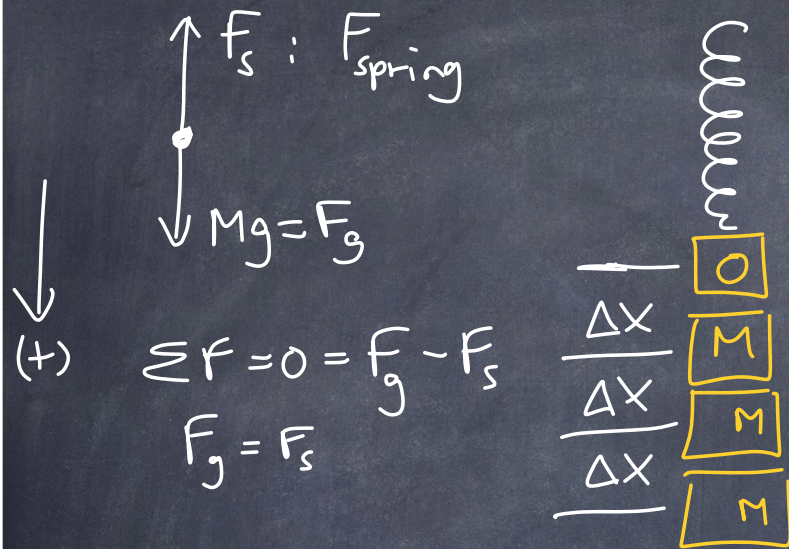 Fs : Fspring
Mg = Fg
(+)
ΣF = 0 = Fg - Fs
Fg = Fs
O
ΔX
M
ΔX
M
ΔX
M